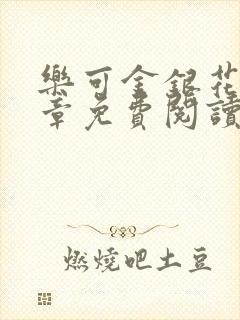 樂可金銀花
章免費閱讀
燃燒吧土豆